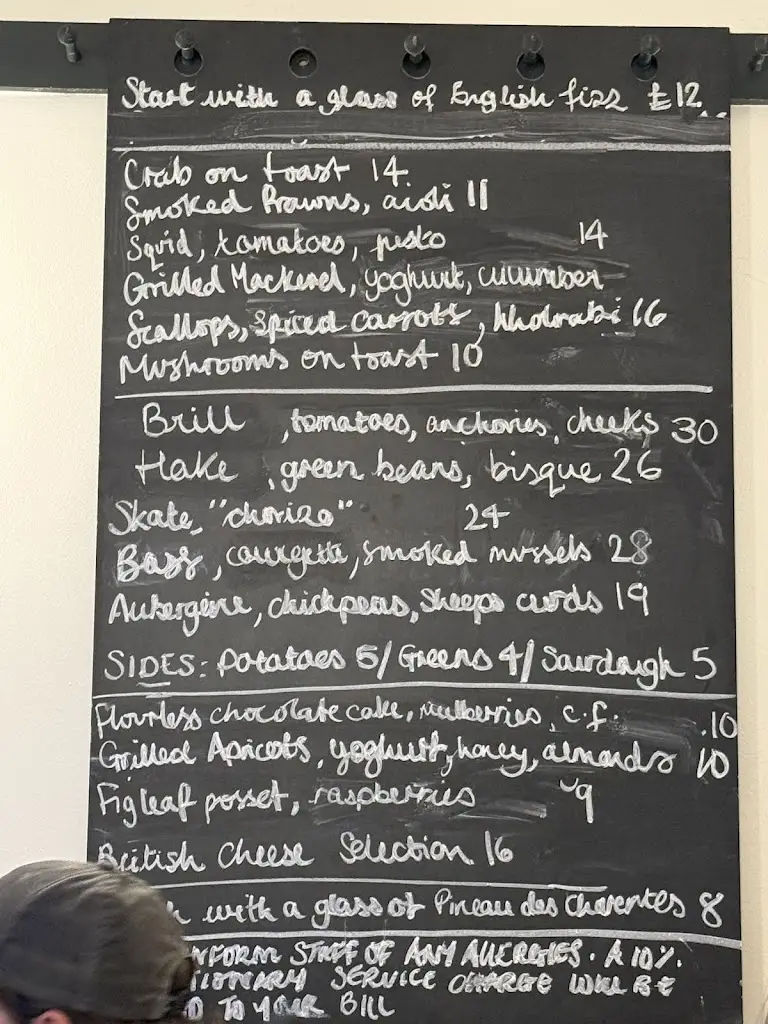 Start with a glass of English fizz £12
Crab on toast 14
Smoked Prawns, aioli 11
Squid, tomatoes, pesto 14
Grilled Mackerel, yoghurt, cucumber
Scallops, spiced carrots, kholrabi 16
Mushrooms on toast 10
Brill , tomatoes, anchovies, cheeks 30
Hake , green beans, bisque 26
Skate, "chorizo" 24
Bass, courgette, smoked mussels 28
Aubergine, chickpeas, sheeps curds 19
SIDES: Potatoes 5/ Greens 4/ Sourdough 5
Flourless chocolate cake, mulberries, c.f. 10
Grilled Apricots, yoghurt, honey, almonds 10
Fig leaf posset, raspberries 9
British Cheese Selection 16
with a glass of Pineau des Charentes 8
NFORM STAFF OF ANY ALLERGIES. A 10%
TIONARY SERVICE CHARGE WILL BE
D TO YOUR BILL